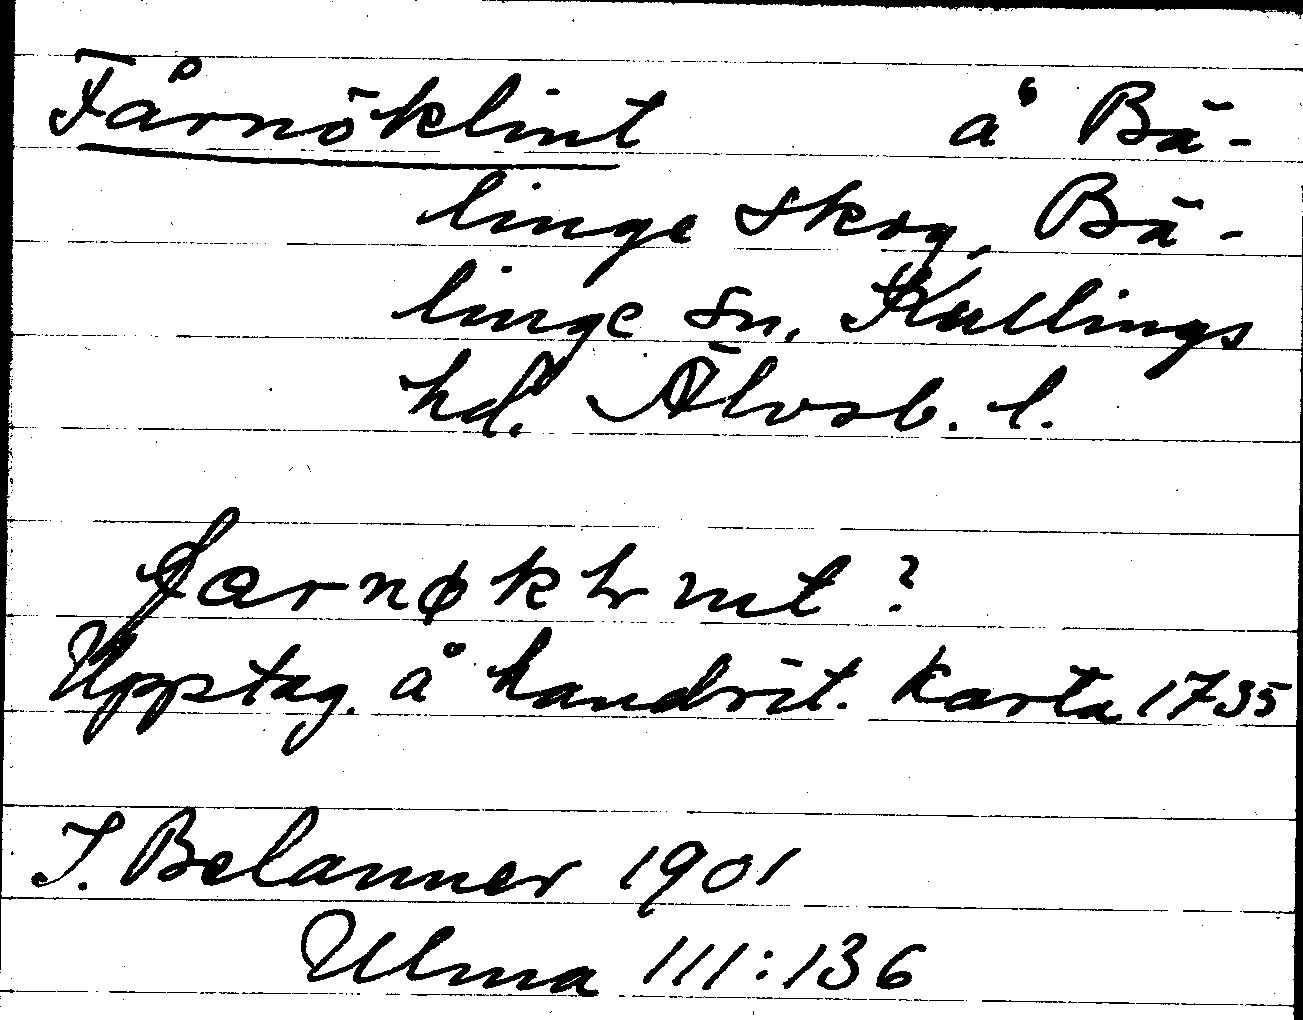 Fårnöklint å Bä-
linge skog, Bä-
linge sn, Kullings
hd. Älvsb. l.
Upptag. å handrit. karta 1735
J. Belanner 1901
Ulma 111:136